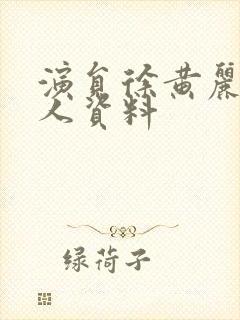 演员徐黄麗
人資料
绿荷子